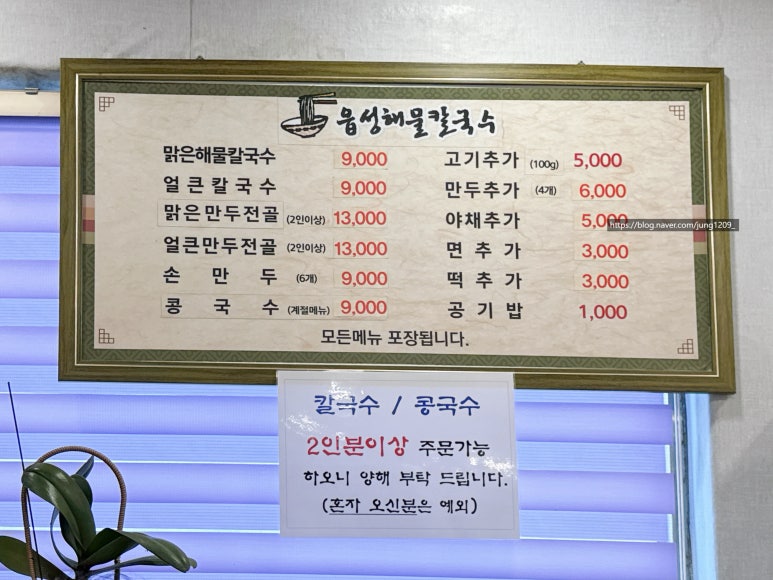 음성해물칼국수
맑은해물칼국수 9,000
얼큰칼국수 9,000
맑은만두전골 (2인이상) 13,000
얼큰만두전골 (2인이상) 13,000
손만두 (6개) 9,000
콩국수 (계절메뉴) 9,000
고기추가 (100g) 5,000
만두추가 (4개) 6,000
야채추가 5,000
면추가 3,000
떡추가 3,000
공기밥 1,000
모든메뉴 포장됩니다.
https://blog.naver.com/jung1209_
칼국수 / 콩국수
2인분이상 주문가능
하오니 양해 부탁 드립니다.
(혼자 오신분은 예외)